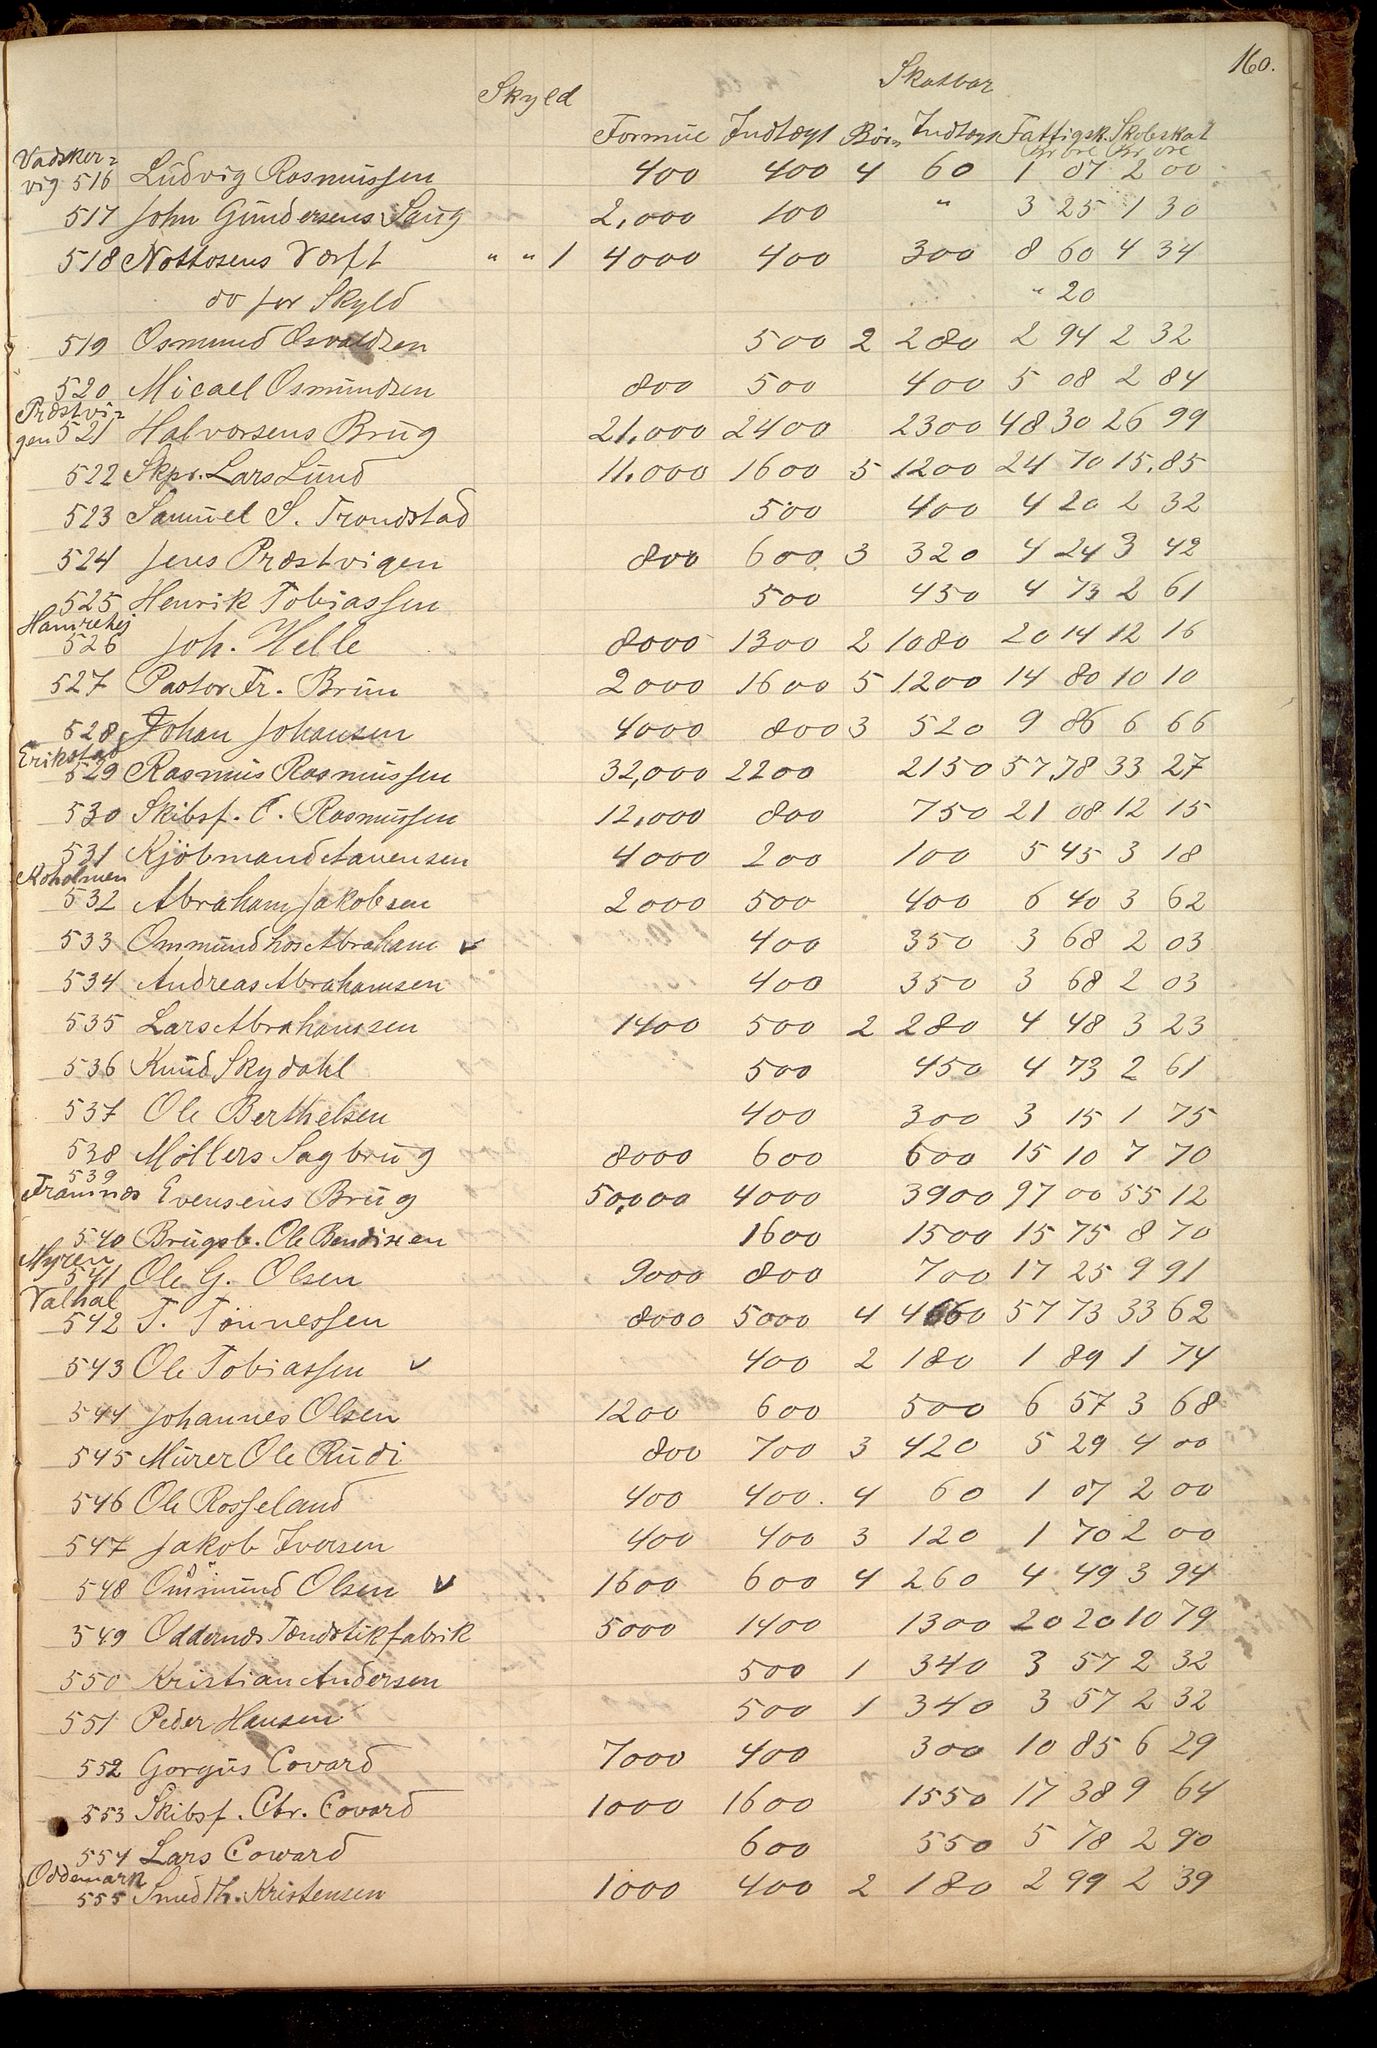 160.
Skyld Skatbar
Formue Indtægt Börn Indtægt Fattigsk. Skoleskat
Kr öre Kr öre
Vadsker=
vig 516 Ludvig Rasmussen 400 400 4 60 1 07 2 00
517 John Gundersens Saug 2,000 100 " 3 25 1 30
518 Nottosens Værft " " 1 4000 400 300 8 60 4 34
do for Skyld " 20
519 Osmund Osvaldsen 500 2 280 2 94 2 32
520 Micael Osmundsen 800 500 400 5 08 2 84
Præstvi=
gen 521 Halvorsens Brug 21,000 2400 2300 48 30 26 99
522 Skpr. Lars Lund 11,000 1600 5 1200 24 70 15,85
523 Samuel S. Trondstad 500 400 4 20 2 32
524 Jens Præstvigen 800 600 3 320 4 24 3 42
525 Henrik Tobiassen 500 450 4 73 2 61
Hamrehei
526 Joh. Helle 8000 1300 2 1080 20 14 12 16
527 Pastor Fr. Brun 2000 1600 5 1200 14 80 10 10
528 Johan Johansen 4000 800 3 520 9 86 6 66
Erikstad
529 Rasmus Rasmussen 32,000 2200 2150 57,78 33 27
530 Skibsf. C. Rasmussen 12,000 800 750 21 08 12 15
531 Kjöbmand 4000 200 100 5 45 3 18
Koholmen
532 Abraham Jakobsen 2000 500 400 6 40 3 62
533 Ommund hos Abraham ✓ 400 350 3 68 2 03
534 Andreas Abrahamsen 400 350 3 68 2 03
535 Lars Abrahamsen 1400 500 2 280 4 48 3 23
536 Knud Skydahl 500 450 4 73 2 61
537 Ole Berthelsen 400 300 3 15 1 75
538 Möllers Sagbrug 8000 600 600 15 10 7 70
539
Framnæs Evensens Brug 50,000 4000 3900 97 00 55 12
540 Brugsb. Ole Bendixen 1600 1500 15 75 8 70
Myren
541 Ole G. Olsen 9000 800 700 17 25 9 91
Valhal
542 T. Tönnessen 8000 5000 4 4660 57 73 33 62
543 Ole Tobiassen ✓ 400 2 180 1 89 1 74
544 Johannes Olsen 1200 600 500 6 57 3 68
545 Murer Ole Rudi 800 700 3 420 5 29 4 00
546 Ole Rosseland 400 400. 4 60 1 07 2 00
547 Jakob Iversen 400 400 3 120 1 70 2 00
548 Ommund Olsen ✓ 1600 600 4 260 4 49 3 94
549 Oddernæs Tændstikfabrik 5000 1400 1300 20 20 10 79
550 Kristian Andersen 500 1 340 3 57 2 32
551 Peder Hansen 500 1 340 3 57 2 32
552 Gorgus Covard 7000 400 300 10 85 6 29
553 Skibsf. Chr. Covard 1000 1600 1550 17 38 9 64
554 Lars Coward 600 550 5 78 2 90
Oddemark
555 Smed Th. Kristensen 1000 400 2 180 2 99 2 39